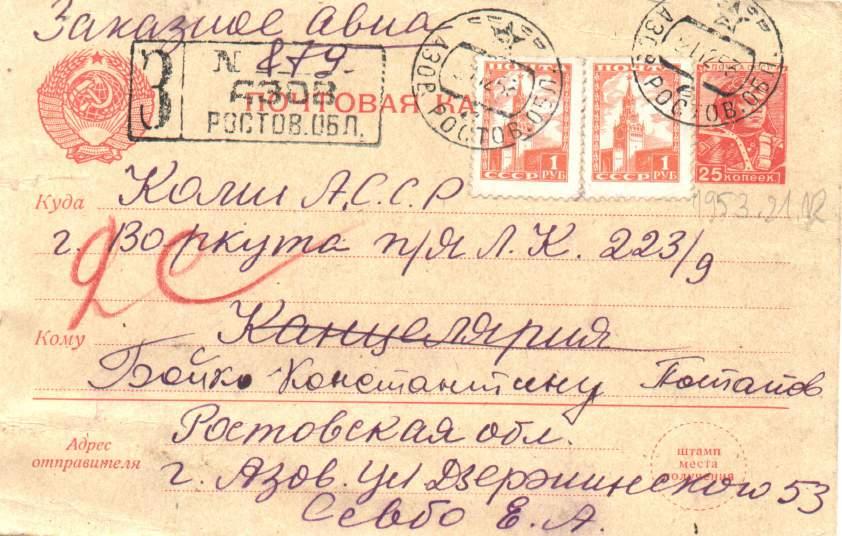 Заказное авиа
З № 479.
АЗОВ
РОСТОВ.ОБЛ.
ПОЧТОВАЯ КА
АЗОВ РОСТОВ.ОБЛ.
АЗОВ РОСТОВ.ОБЛ.
ПОЧТА
1 РУБ
СССР
ПОЧТА
1 РУБ
СССР
25 копеек
1953.21.12
Куда Коми А.С.С.Р
г. Воркута п/я Л.К. 223/9
Кому Канцелярия
Бойко Константину Потапов
Адрес отправителя
Ростовская обл.
г. Азов. ул Дзержинского 53
Севбо Е.А.
штамп
места
получения